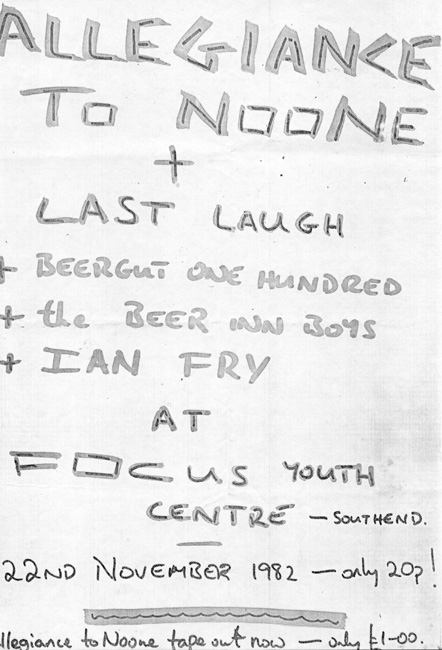 ALLEGIANCE
TO NOONE
+
LAST LAUGH
+ BEERGUT ONE HUNDRED
+ the BEER INN BOYS
+ IAN FRY
AT
FOCUS YOUTH
CENTRE - SOUTHEND.
22ND NOVEMBER 1982 - only 20p!
Allegiance to Noone tape out now - only £1-00.